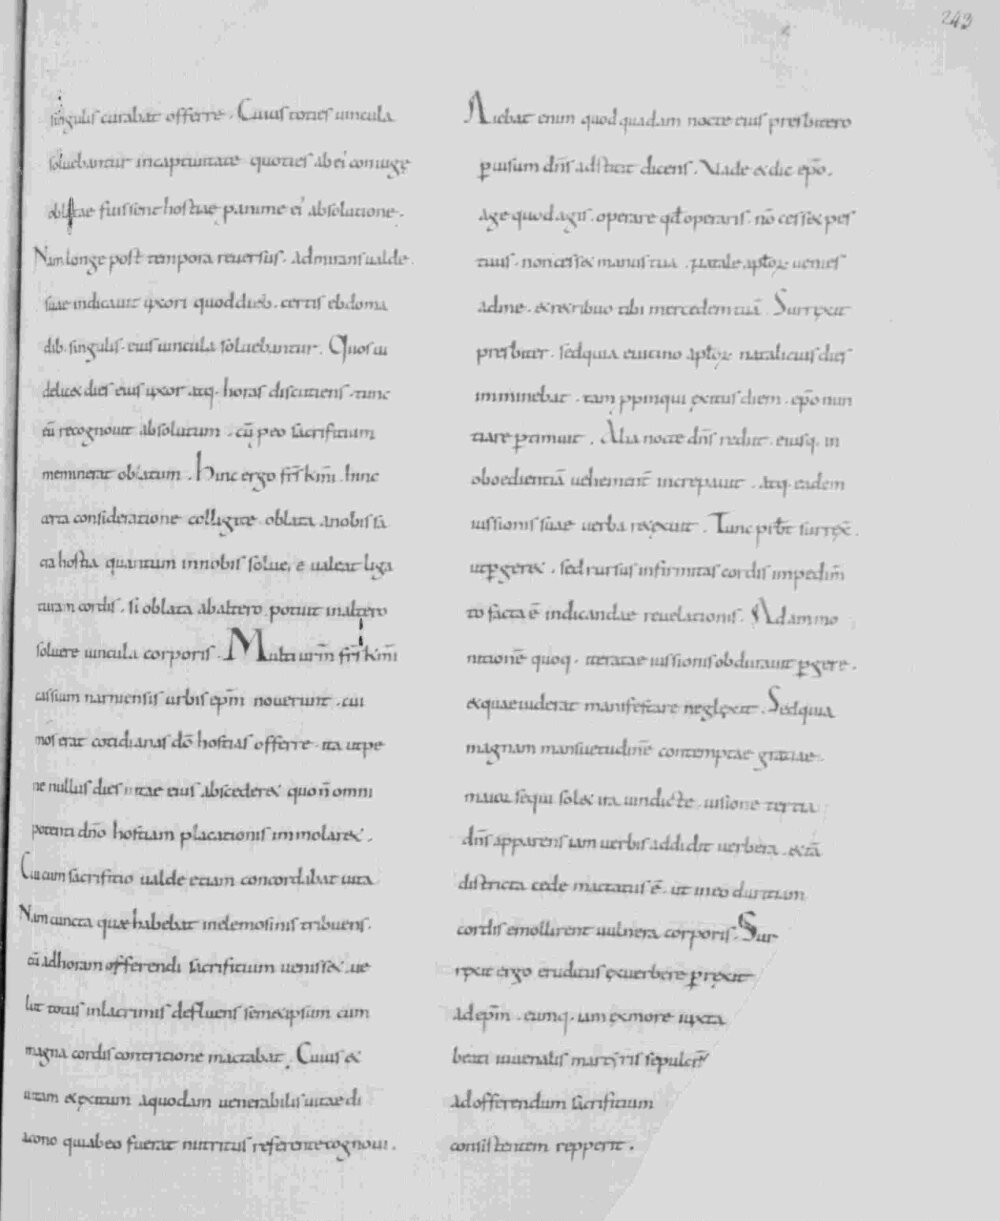 243
singulis curabat offerre. Cuius toties uincula
soluebantur incaptiuitate quoties abei coniuge
oblatae fuissent hostiae panime ei absolutione.
Nam longe post tempora reuersus. admirans ualde
suae indicauit uxori quod dieb. certis ebdoma
dib. singulis. eius uincula soluebantur. Quos ui
delicet dies eius uxor atq. horas discutiens. tunc
eū recognouit absolutum. cū peo sacrificium
meminerat oblatum. Hinc ergo frīs kmī. hinc
certa consideratione colligite. oblata anobis sa
cra hostia quantum innobis solue e ualeat liga
turam cordis. si oblata abaltero potuit inaltero
soluere uincula corporis. Multi urm̄ frīs kmī
cassium narniensis urbis epm̄ nouerunt. cui
mos erat cotidianas dō hostias offerre. ita utpe
ne nullus dies uitae eius abscederet quo n̄ omni
potenti dn̄o hostiam placationis immolaret.
Cui cum sacrificio ualde etiam concordabat uita
Nam cuncta quae habebat inelemosinis tribuens.
cū adhoram offerendi sacrificium uenisset. ue
lut totus inlacrimis defluens semetipsum cum
magna cordis contritione mactabat. Cuius et
uitam et exitum aquodam uenerabilis uitae di
acono quiabeo fuerat nutritus referente cognoui.
Aiebat enim quod quadam nocte eius presbitero
puisum dn̄s adstitit dicens. Vade et dic epō.
age quod agis. operare qd operaris. nō cesset pes
tuus. non cesset manus tua. natale aptoꝝ uenies
adme. et retribuo tibi mercedem tuā. Surrexit
presbiter. sed quia euicino aptoꝝ natalicius dies
imminebat. tam ppinqui exitus diem. epō nun
tiare pertimuit. Alia nocte dn̄s rediit. eiusq. in
oboedientiā uehement̄ increpauit. atq. eadem
iussionis suae uerba retexuit. Tunc prb̄t surrex̄.
utpgeret. sed rursus infirmitas cordis impedim̄
to facta ē indicandae reuelationis. Ad ammo
nitionē quoq. iteratae iussionis obdurauit pgere.
et quae uiderat manifestare neglexit. Sed quia
magnam mansuetudinē contemptae gratiae.
maior sequi solet ira uindictae. uisione tertia
dn̄s apparens iam uerbis addidit uerbera. et tā
districta cede mactatus ē. ut ineo duritiam
cordis emollirent uulnera corporis. Sur
rexit ergo eruditus exuerbere perrexit
ad epm̄. eumq. iam exmore iuxta
beati iuuenalis martyris sepulcr̄
ad offerendum sacrificium
consistentem repperit.